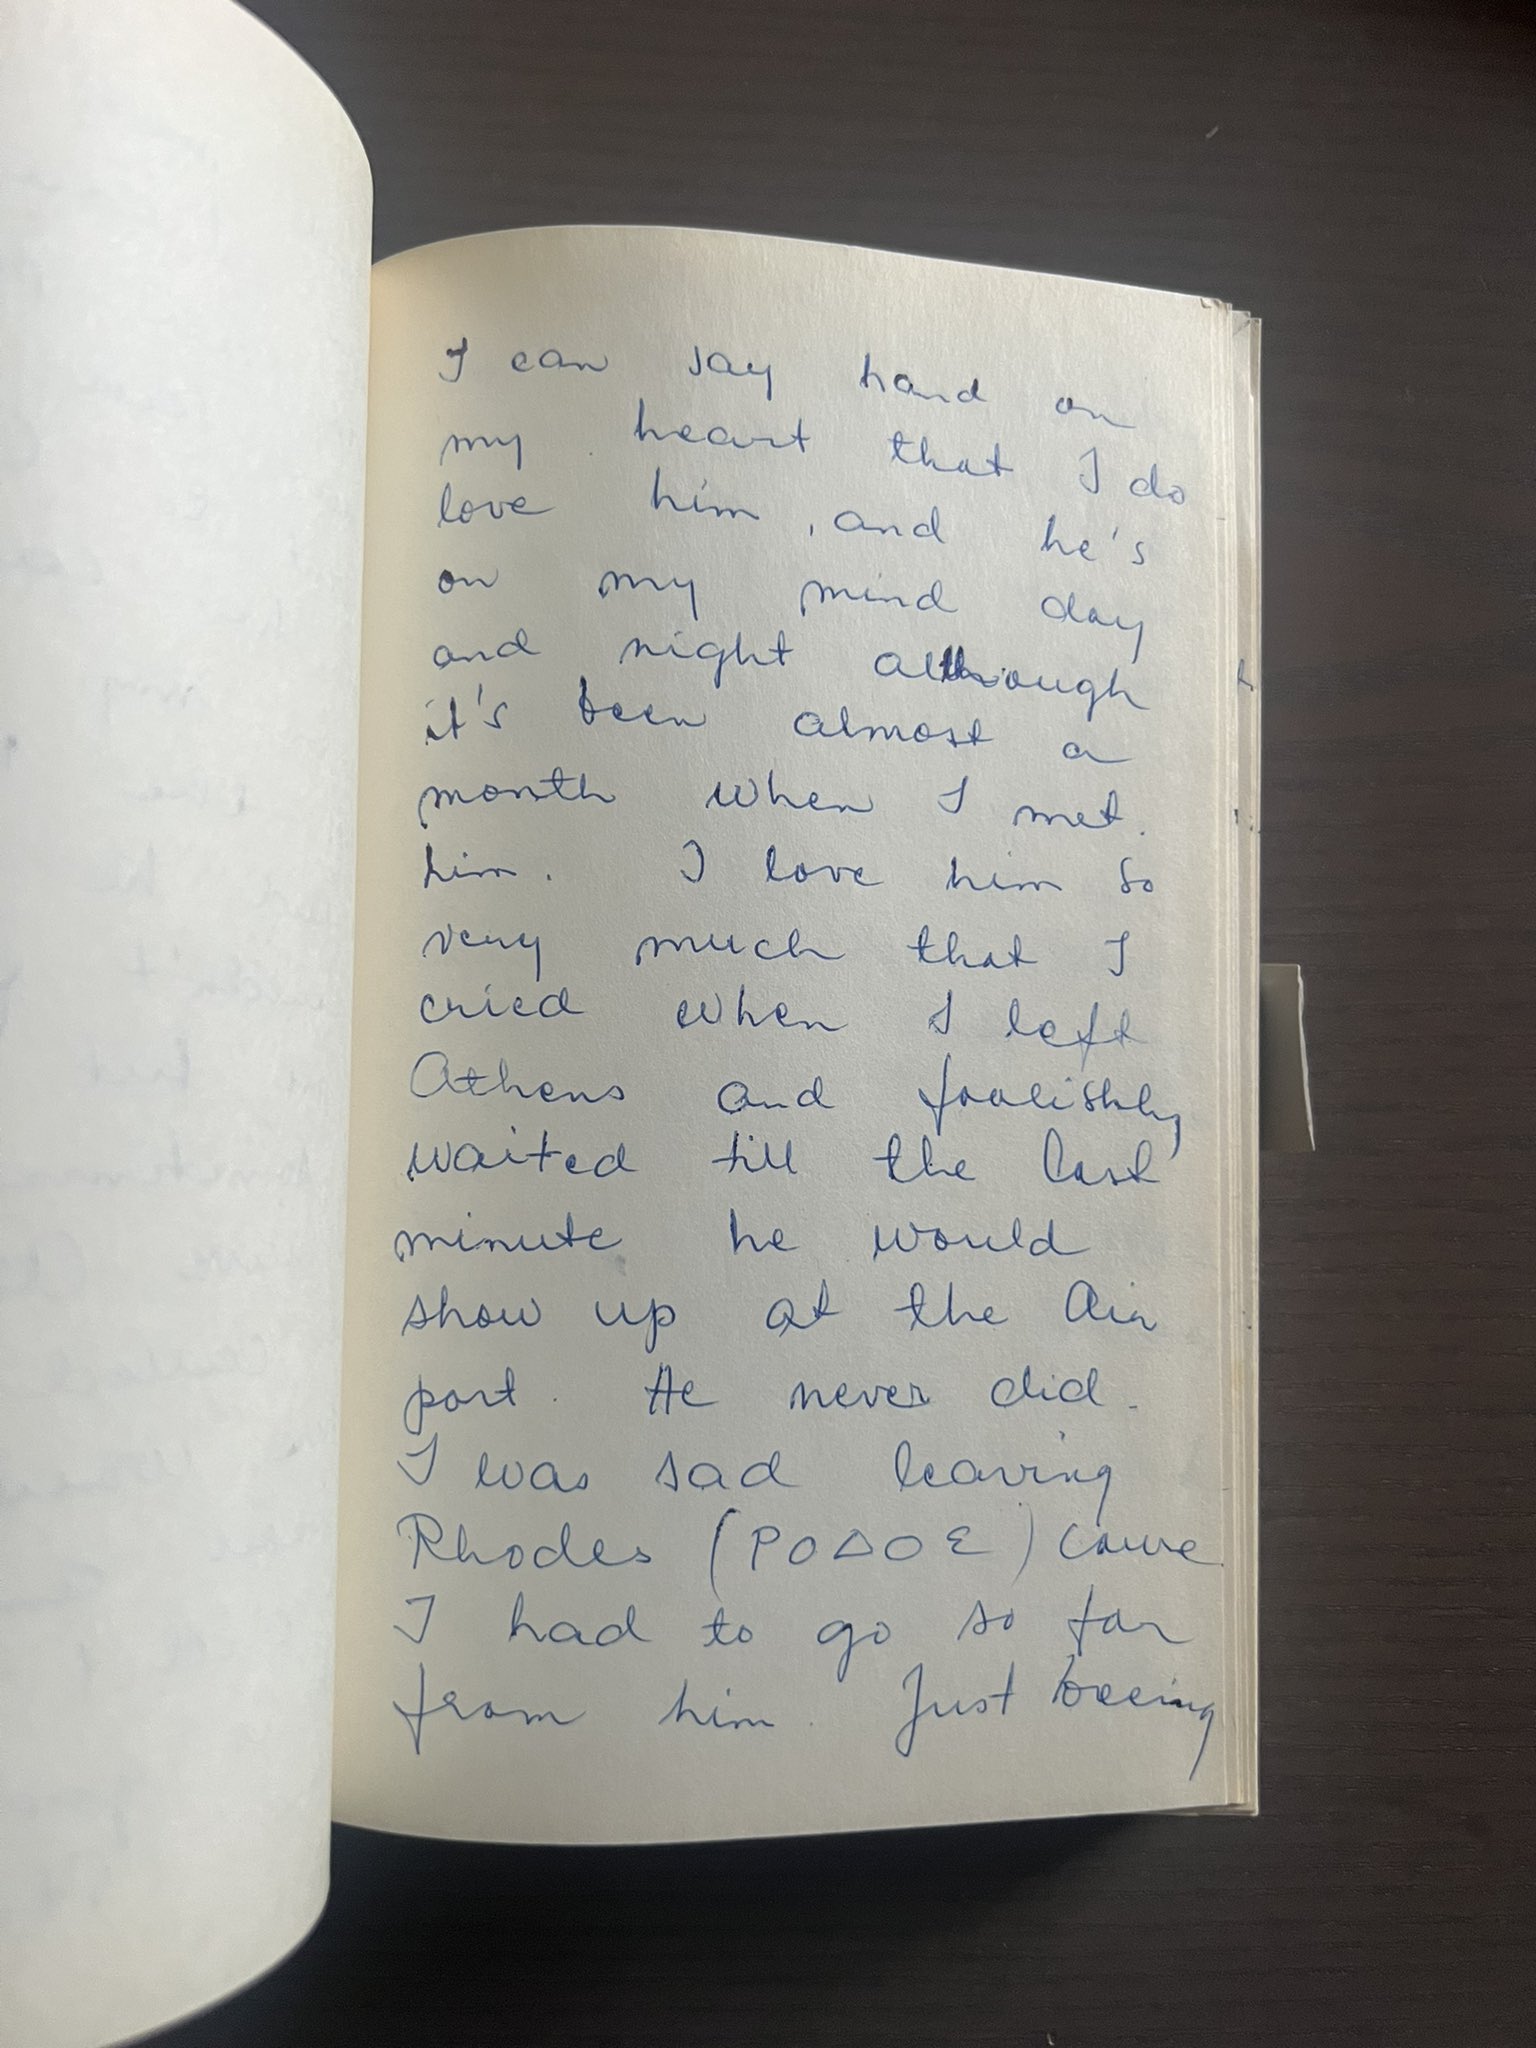 I can say hand on
my heart that I do
love him, and he's
on my mind day
and night although
it's been almost a
month when I met
him. I love him so
very much that I
cried when I left
Athens and foolishly
waited till the last
minute he would
show up at the Air
port. He never did.
I was sad leaving
Rhodes (ΡΟΔΟΣ) cause
I had to go so far
from him. Just beeing